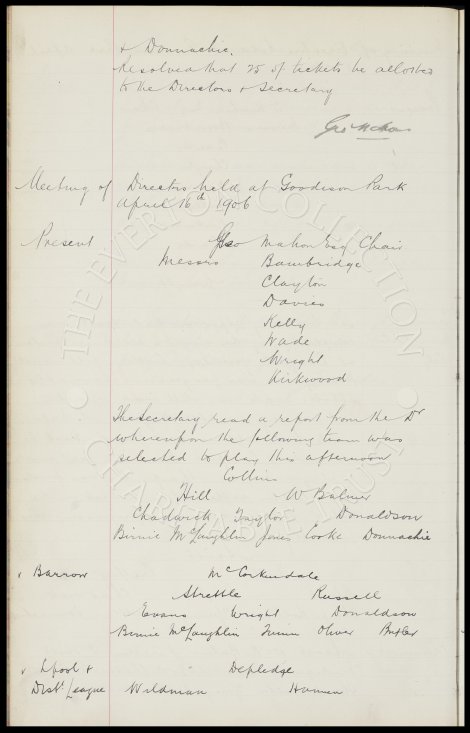 & Donnachie.
Resolved that 25 5/- tickets be allowed
to the Directors & Secretary
Geo Mahon
Meeting of Directors held at Goodison Park
April 16th 1906
Present Geo Mahon Esq Chair
Messrs Bainbridge
Clayton
Davies
Kelly
Wade
Wright
Kirkwood
The Secretary read a report from the Dr
whereupon the following team was
selected to play this afternoon
Collins
Hill W Balmer
Chadwick Taylor Donaldson
Birnie McLaughlin Jones Cooke Donnachie
v Barrow McCorkindale
Strettle Russell
Evans Wright Donaldson
Birnie McLaughlin Oliver Butler
v Lpool &
Dist. League
Depledge
Wildman
THE EVERTON COLLECTION
CHARITABLE TRUST